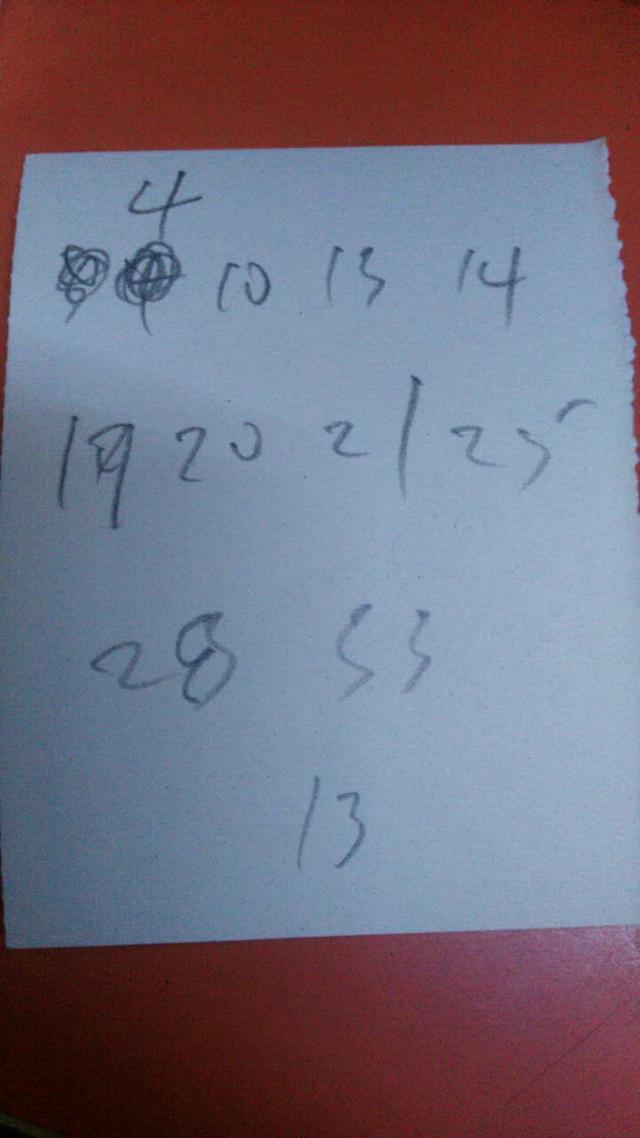 4
10 13 14
19 20 21 25
28 33
13